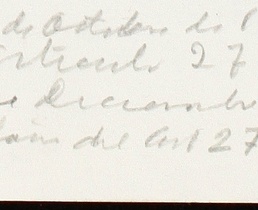 de Octubre de 1
Artículo 27
e Diciembre
del Art 27